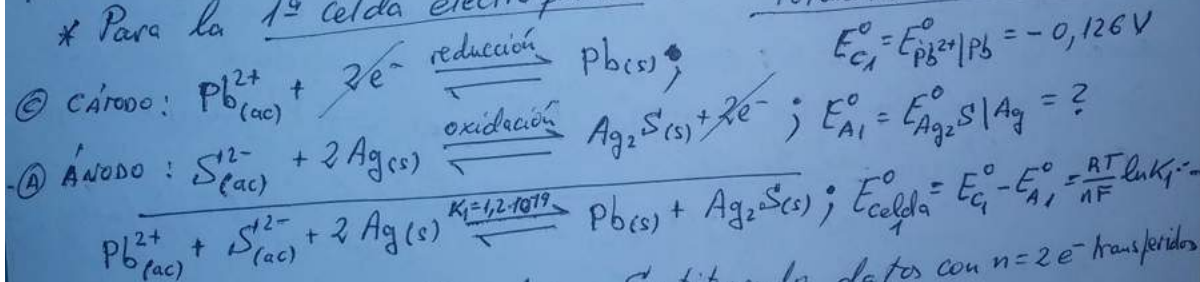 * Para la 1ª celda
© CÁTODO: Pb²⁺(ac) + 2e⁻ reducción ⇌ Pb(s); E°C₁ = E°Pb²⁺|Pb = - 0,126 V
-Ⓐ ÁNODO: S²⁻(ac) + 2 Ag(s) oxidación ⇌ Ag₂S(s) + 2e⁻; E°A₁ = E°Ag₂S|Ag = ?
Pb²⁺(ac) + S²⁻(ac) + 2 Ag(s) K₁=1,2·10¹⁹ ⇌ Pb(s) + Ag₂S(s); E°celda₁ = E°C₁ - E°A₁ = RT/nF ln K₁
datos con n = 2 e⁻ transferidos